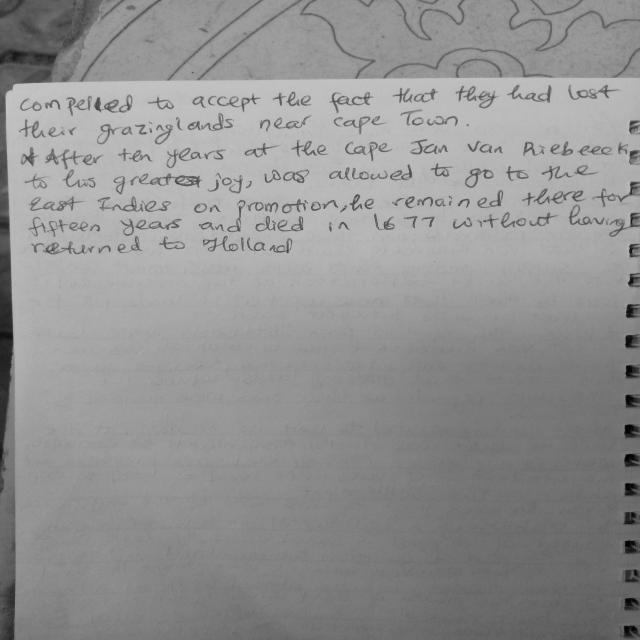 compelled to accept the fact that they had lost
their grazinglands near Cape Town.
After ten years at the Cape Jan van Riebeeck
to his greatest joy, was allowed to go to the
East Indies on promotion, he remained there for
fifteen years and died in 1677 without having
returned to Holland